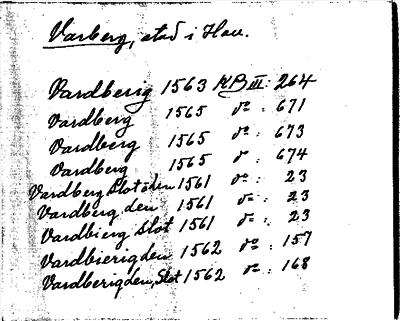 Varberg, stad i Hall.
Vardberig 1563 KB III: 264
Vardberg 1565 do : 671
Vardberg 1565 do : 673
Vardberg 1565 do : 674
Vardberg Slot den 1561 do : 23
Vardberg den 1561 do : 23
Vardbierg slot 1561 do : 23
Vardbierig den 1562 do : 157
Vardberig den, Slot 1562 do : 168